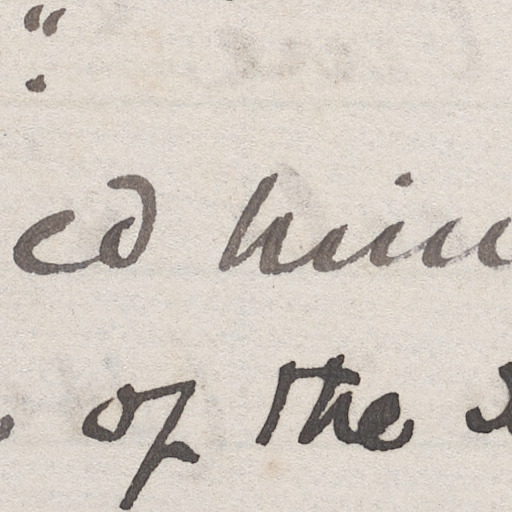 ."
ed him
of the